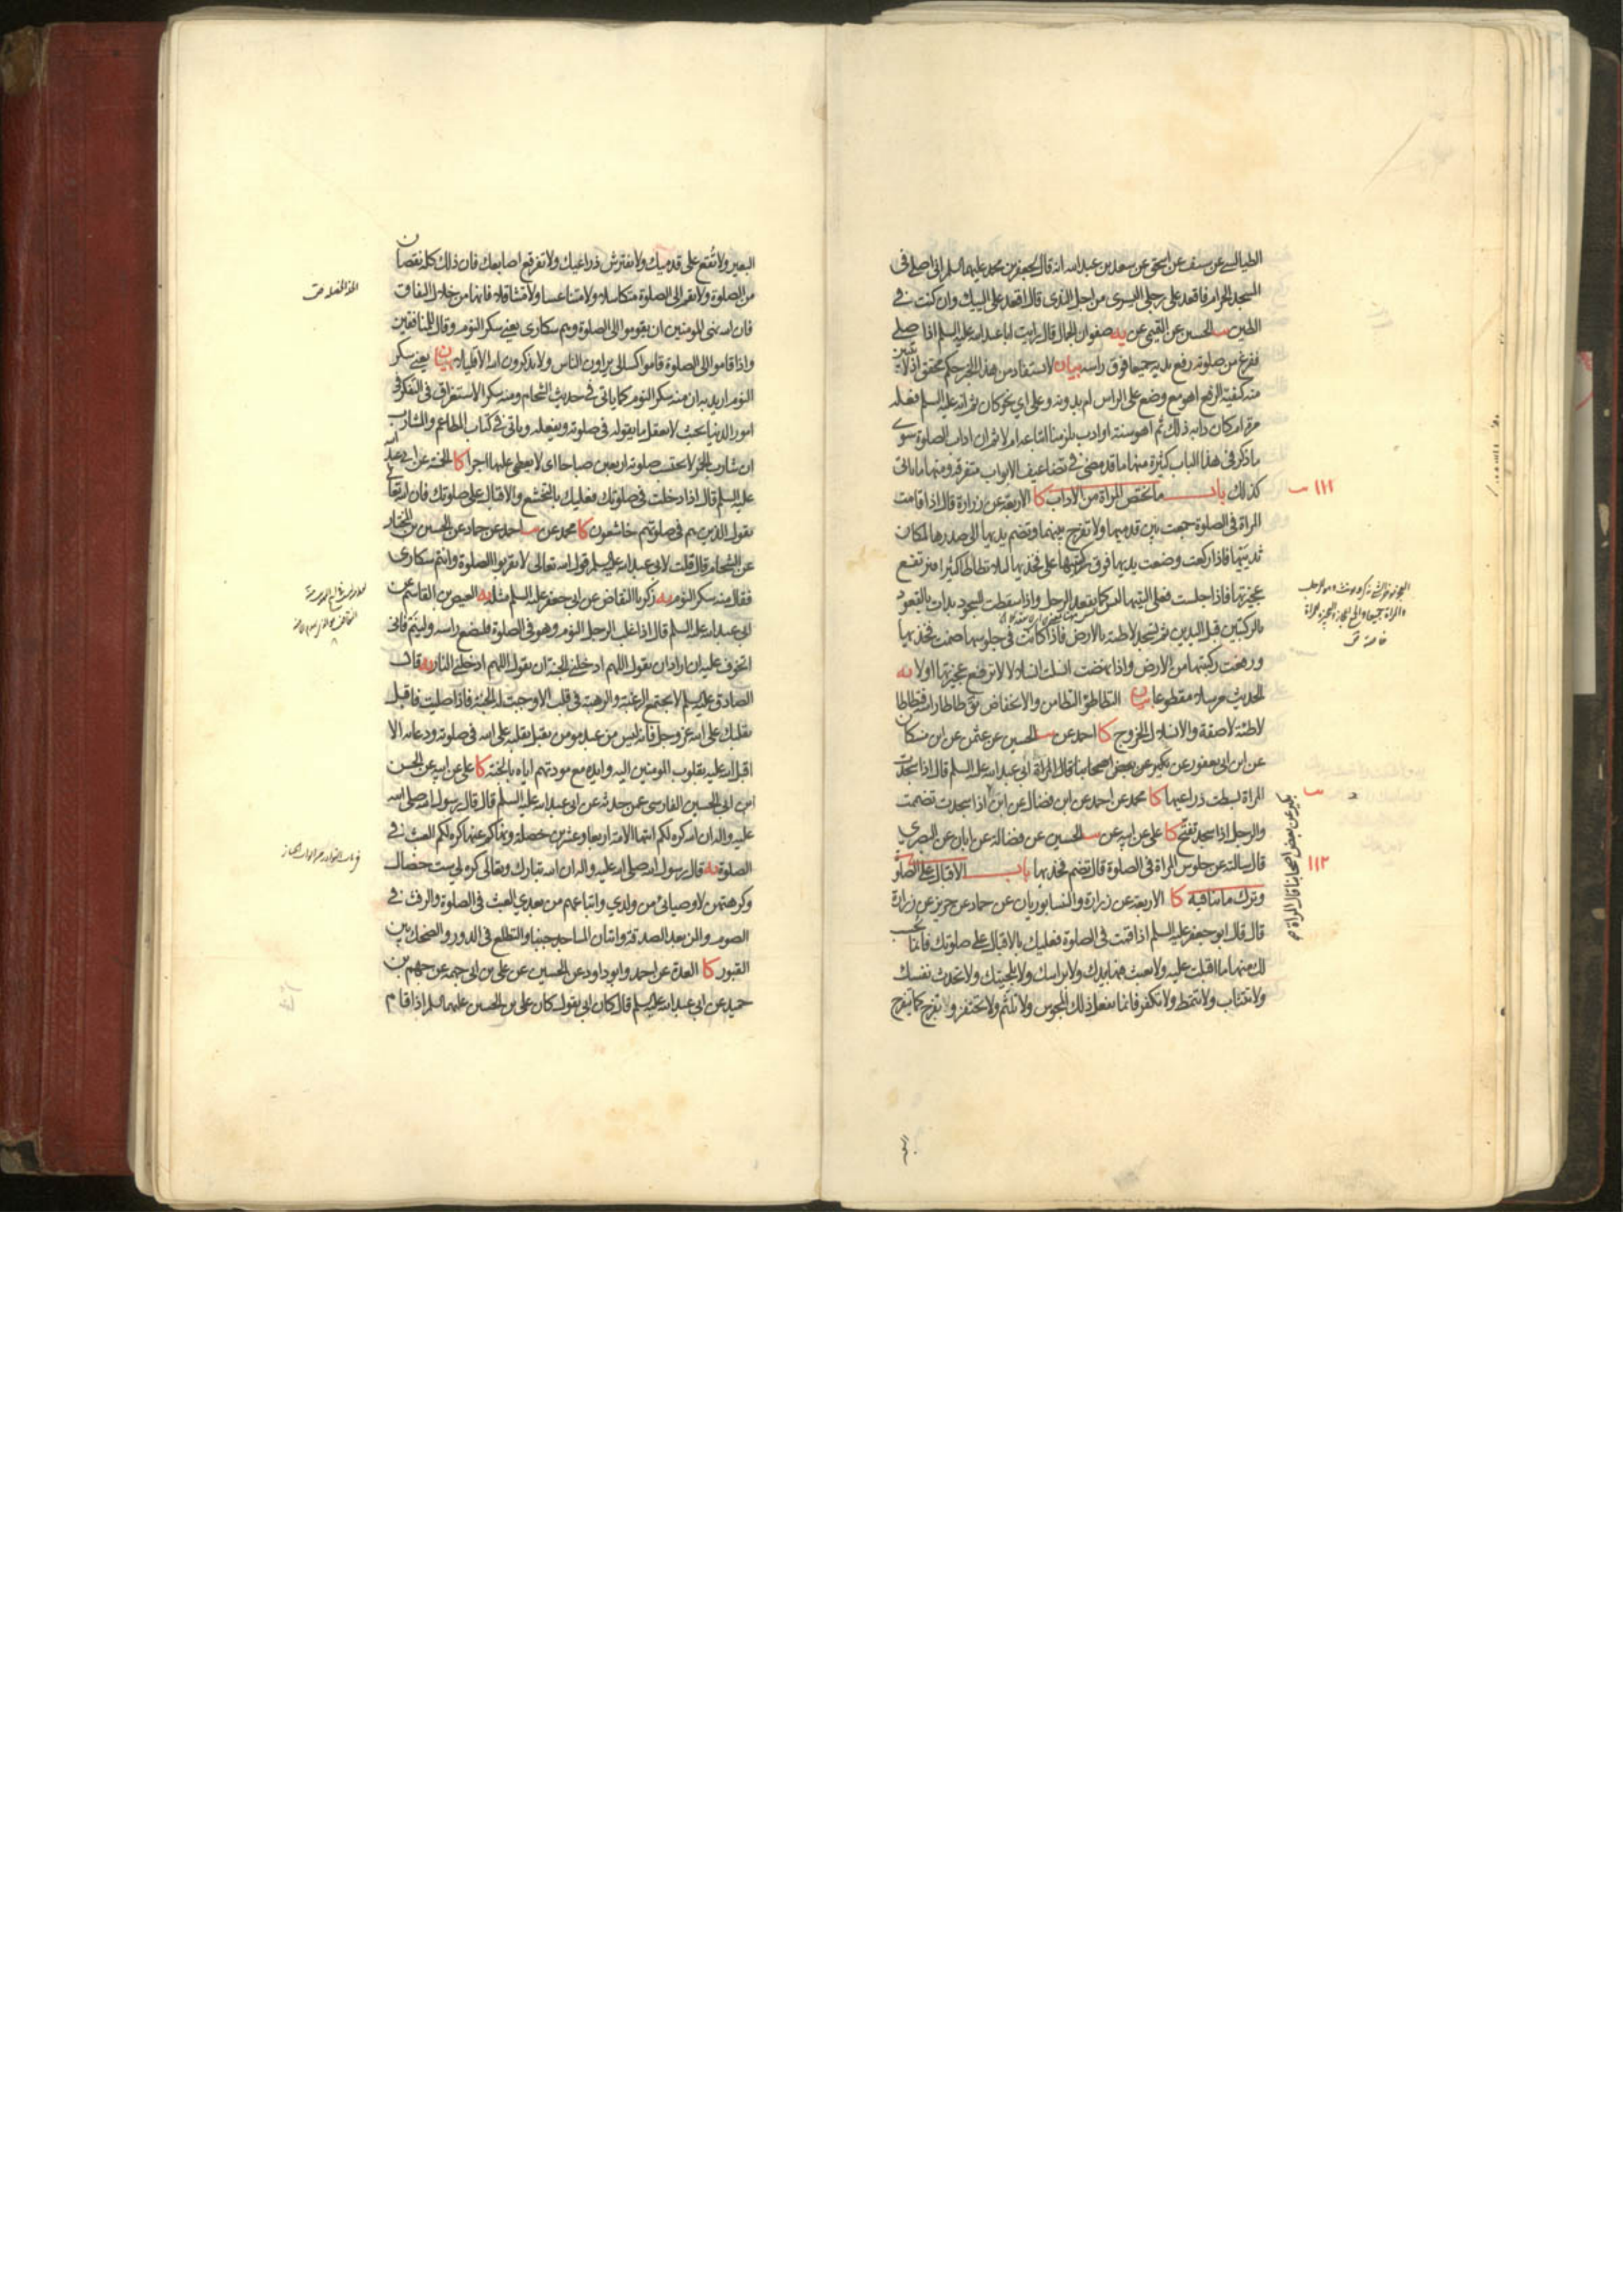 الطيالسي عن سيف عن اسحق عن سعد بن عبدالله انه قال لجعفر بن محمد عليهما السلم اني اصلي في
المسجد الحرام فاقعد على رجلي اليسرى من اجل الندى قال اقعد على اليتيك وان كنت في
الطين الحسين عن القسم عن يه صفوان الجمال قال رايت ابا عبدالله عليه السلم اذا صلى
ففرغ من صلوته رفع يديه جميعا فوق راسه بيان لا يستفاد من هذا الخبر حكم محقق اذ لا يتبين
منه كيفية الرفع اهو مع وضع على الراس ام بدونه وعلى اي نحو كان ثم انه عليه السلم فعله
مرة ام كان دابه ذلك ثم اهو سنة او ادب يلزمنا اتباعه ام لا ثم ان اداب الصلوة سوى
ما ذكر في هذا الباب كثيرة منها ما قد مضى في تضاعيف الابواب متفرقة ومنها ما ياتي
كذلك باب ما يختص المراة من الاداب كا الاربعة عن زرارة قال اذا قامت
١١١
المراة في الصلوة جمعت بين قدميها ولا تفرج بينهما وتضم يديها الى صدرها لمكان
ثدييها فاذا ركعت وضعت يديها فوق ركبتيها على فخذيها لئلا تطاطا كثيرا فترتفع
عجيزتها فاذا جلست فعلى اليتيها ليس كما يقعد الرجل واذا سقطت للسجود بدات بالقعود
بالركبتين قبل اليدين ثم تسجد لاطئة بالارض فاذا كانت في جلوسها ضمت فخذيها
ورفعت ركبتيها من الارض واذا نهضت انسلت انسلالا لا ترفع عجيزتها اولا يه
الحديث مرسلا مقطوعا بيان التطاطؤ التطامن والانخفاض يق طاطا راسه فتطاطا
لاطئة لاصقة والانسلال الخروج كا احمد عن الحسين عن عثمن عن ابن مسكان
عن ابن ابي يعفور عن بكير عن بعض اصحابنا قال المراة ابي عبدالله عليه السلم قال اذا سجدت
المراة بسطت ذراعيها كا محمد عن احمد عن ابن فضال عن ابن اذا سجدت تضممت
بكير عن بعض اصحابنا قال المراة
والرجل اذا سجد تفتح كا علي عن ابيه عن الحسين عن فضالة عن ابان عن البصري
قال سالته عن جلوس المراة في الصلوة قال تضم فخذيها باب الاقبال على الصلوة
١١٢
وترك ما ينافيه كا الاربعة عن زرارة والنيسابوريان عن حماد عن حريز عن زرارة
قال قال ابو جعفر عليه السلم اذا قمت في الصلوة فعليك بالاقبال على صلوتك فانما يحسب
لك منها ما اقبلت عليه ولا تعبث فيها بيدك ولا براسك ولا بلحيتك ولا تحدث نفسك
ولا تتثاب ولا تتمط ولا تكفر فانما يفعل ذلك المجوس ولا تلثم ولا تحتفز و تفرج كما يتفرج
البعير ولا تقع على قدميك ولا تفترش ذراعيك ولا تفرقع اصابعك فان ذلك كله نقصان
من الصلوة ولا تقم الى الصلوة متكاسلا ولا متناعسا ولا متثاقلا فانها من خلال النفاق
فان الله نهى المومنين ان يقوموا الى الصلوة وهم سكارى يعني سكر النوم وقال للمنافقين
واذا قاموا الى الصلوة قاموا كسالى يراؤن الناس ولا يذكرون الله الا قليلا بيان يعني سكر
النوم اريد به ان منه سكر النوم كما ياتي في حديث الشحام ومنه سكر الاستغراق في التفكر في
امور الدنيا بحيث لا يعقل ما يقوله في صلوته ويفعله وياتي في كتاب المطاعم والمشارب
ان شارب الخمر لا تحتسب صلوته اربعين صباحا اي لا يعطى عليها اجرا كا الخمسة عن ابي عبدالله
عليه السلم قال اذا دخلت في صلوتك فعليك بالتخشع والاقبال على صلوتك فان الله تعالى
يقول الذين هم في صلوتهم خاشعون كا محمد عن احمد عن حماد عن الحسين بن المختار
عن الشحام قال قلت لابي عبدالله عليه السلم قول الله تعالى لا تقربوا الصلوة وانتم سكارى
فقال منه سكر النوم يه زكريا النقاض عن ابي جعفر عليه السلم مثله يه العيص بن القاسم عن
ابي عبدالله عليه السلم قال اذا غلب الرجل النوم وهو في الصلوة فليضع راسه ولينم فاني
اتخوف عليه ان اراد ان يقول اللهم ادخلني الجنة ان يقول اللهم ادخلني النار يه قال
الصادق عليه السلم لا يجتمع الرغبة والرهبة في قلب الا وجبت له الجنة فاذا صليت فاقبل
بقلبك على الله عز وجل فانه ليس من عبد مومن يقبل بقلبه على الله في صلوته ودعائه الا
اقبل الله عليه بقلوب المومنين اليه وايده مع مودتهم اياه بالجنة كا علي عن ابيه عن الحسن
ابن ابي الحسين الفارسي عن حدثه عن ابي عبدالله عليه السلم قال قال رسول الله صلى الله
عليه واله ان الله كره لكم ايتها الامة اربعا وعشرين خصلة ونهاكم عنها كره لكم العبث في
الصلوة يه قال رسول الله صلى الله عليه واله ان الله تبارك وتعالى كره لي ست خصال
وكرهتهن للاوصياء من ولدي واتباعهم من بعدي العبث في الصلوة والرفث في
الصوم والمن بعد الصدقة واتيان المساجد جنبا والتطلع في الدور والضحك بين
القبور كا العدة عن احمد وابو داود عن الحسين عن علي بن ابي جهمة عن جهم بن
حميد عن ابي عبدالله عليه السلم قال كان ابي يقول كان علي بن الحسين عليهما السلم اذا قام